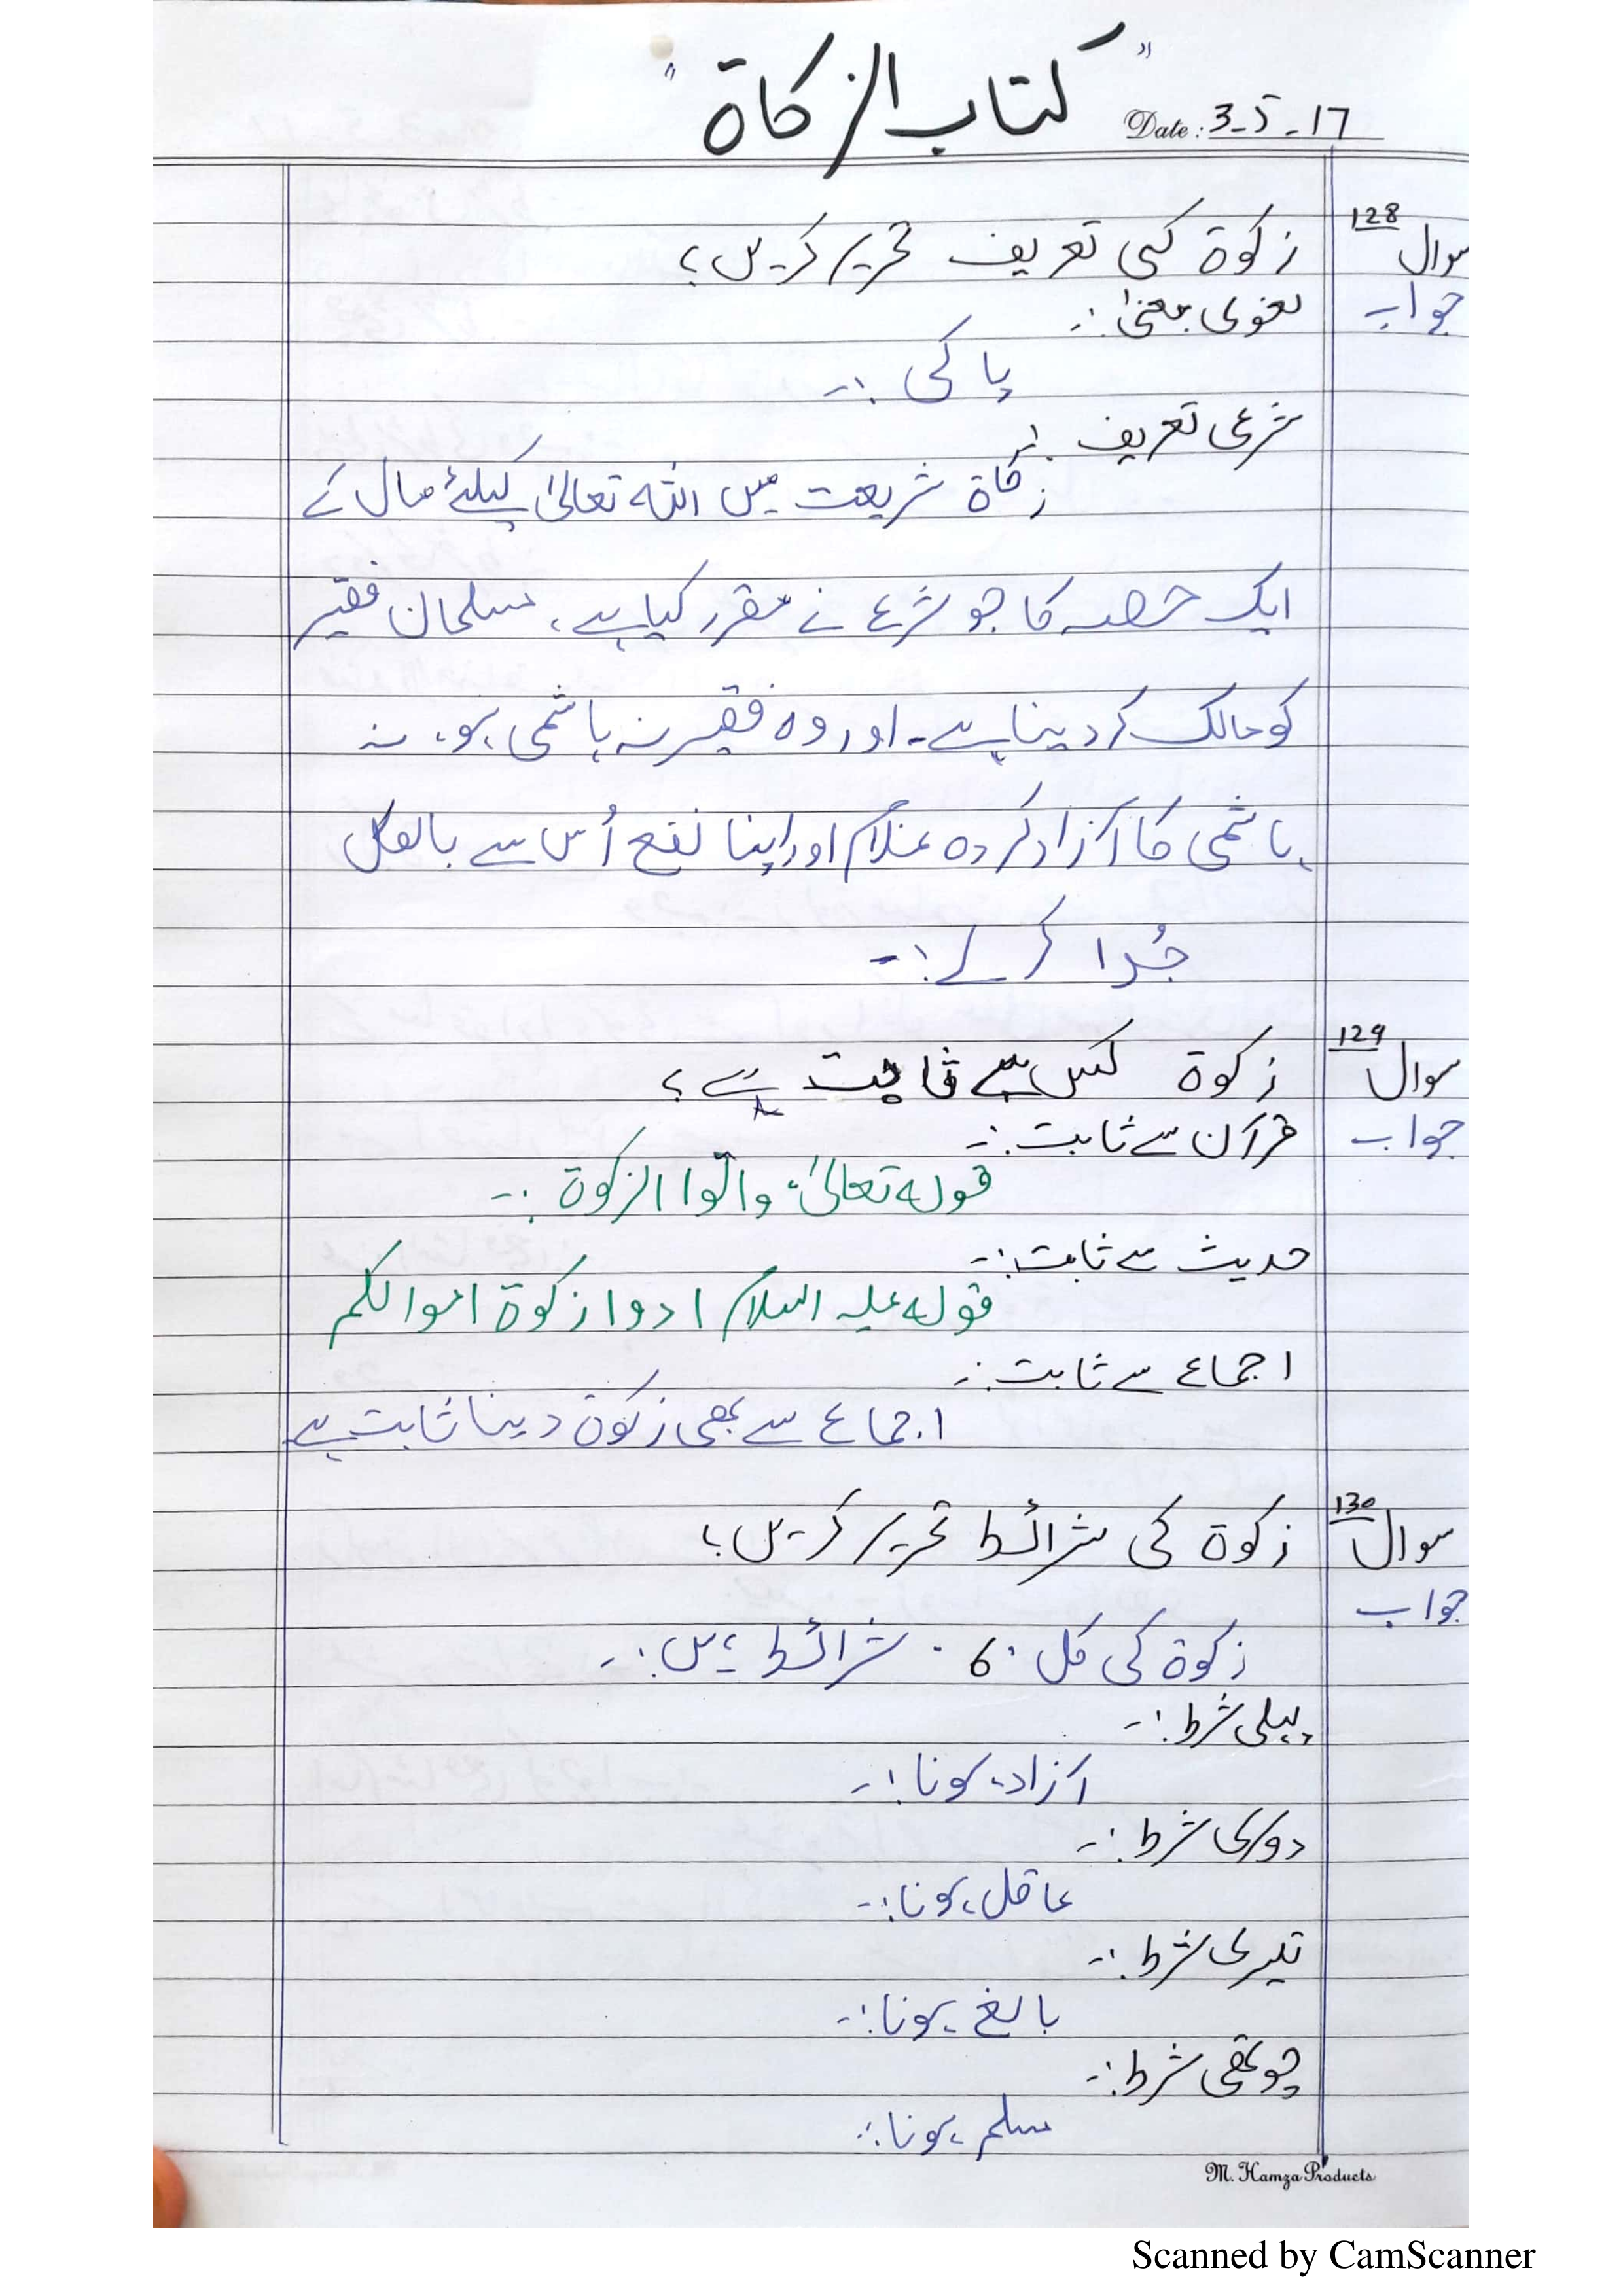 "کتاب الزکاۃ"
Date: 3-5-17
سوال 128 زکوۃ کی تعریف تحریر کریں؟
جواب لغوی معنیٰ :-
پاکی :-
شرعی تعریف :-
زکاۃ شریعت میں اللہ تعالیٰ کیلئے مال کے
ایک حصہ کا جو شرع نے مقرر کیا ہے، مسلمان فقیر
کو مالک کر دینا ہے۔ اور وہ فقیر نہ ہاشمی ہو، نہ
ہاشمی کا آزاد کردہ غلام اور اپنا نفع اُس سے بالکل
جُدا کرلے :-
سوال 129 زکوۃ کس سے ثابت ہے؟
جواب قرآن سے ثابت :-
قولہ تعالیٰ، واٰتوا الزکوۃ :-
حدیث سے ثابت :-
قولہ علیہ السلام ادوا زکوۃ اموالکم
اجماع سے ثابت :-
اجماع سے بھی زکوۃ دینا ثابت ہے
سوال 130 زکوۃ کی شرائط تحریر کریں؟
جواب
زکوۃ کی کل 6 شرائط ہیں :-
پہلی شرط :-
آزاد ہونا :-
دوسری شرط :-
عاقل ہونا :-
تیسری شرط :-
بالغ ہونا :-
چوتھی شرط :-
مسلم ہونا :-
M. Hamza Products
Scanned by CamScanner